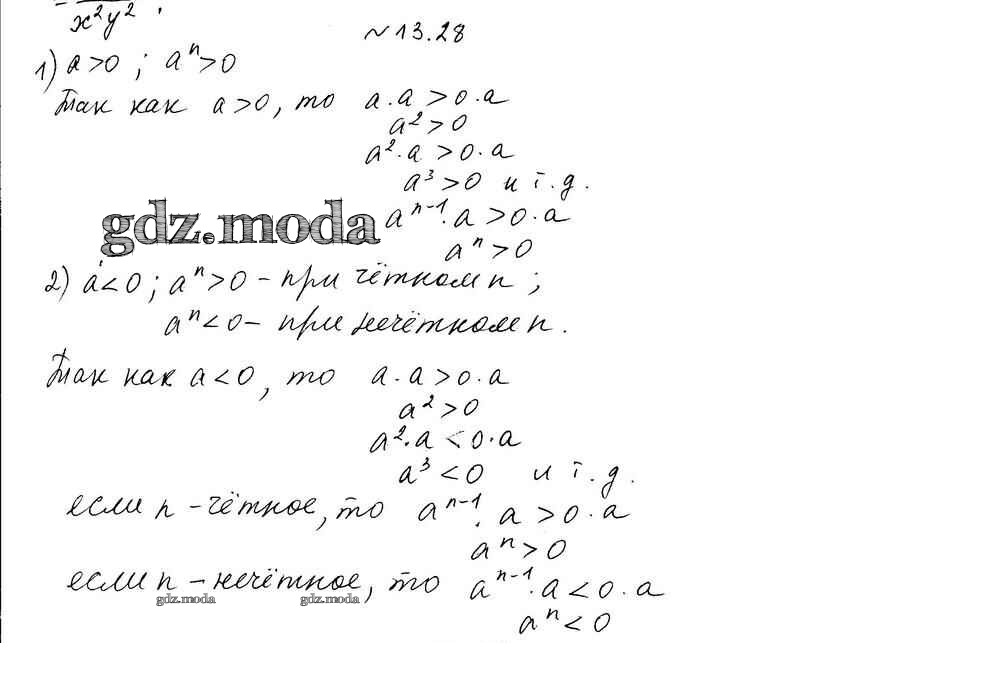 x²y² .
№ 13.28
1) a>0 ; aⁿ>0
Так как a>0, то a·a>0·a
a²>0
a²·a>0·a
a³>0 и т.д.
gdz.moda
aⁿ⁻¹·a>0·a
aⁿ>0
2) a<0; aⁿ>0 – при чётном n ;
aⁿ<0 – при нечётном n.
Так как a<0, то a·a>0·a
a²>0
a²·a<0·a
a³<0 и т.д.
если n – чётное, то aⁿ⁻¹·a>0·a
aⁿ>0
если n – нечётное, то aⁿ⁻¹·a<0·a
gdz.moda gdz.moda
aⁿ<0